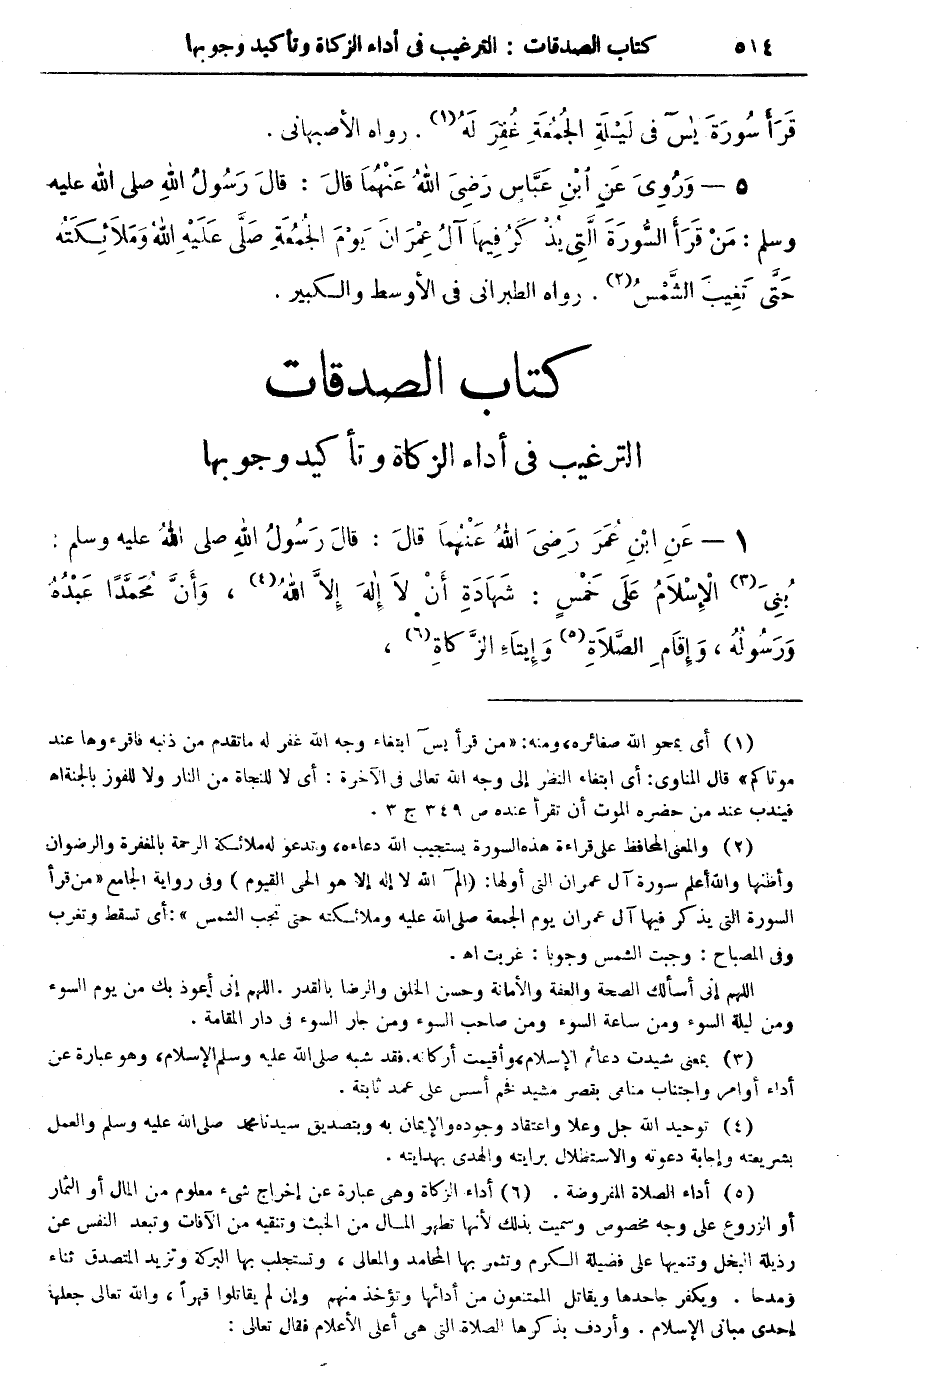 ٥١٤ كتاب الصدقات : الترغيب فى أداء الزكاة وتأكيد وجوبها
قَرَأَ سُورَةَ يٰسٓ فى لَيْلَةِ الجُمُعَةِ غُفِرَ لَهُ(١) . رواه الأصبهانى .
٥ — وَرُوِىَ عَنِ ابْنِ عَبَّاسٍ رَضِىَ اللهُ عَنْهُمَا قالَ : قالَ رَسُولُ اللهِ صلى الله عليه
وسلم : مَنْ قَرَأَ السُّورَةَ الَّتِى يُذْكَرُ فِيهَا آلُ عِمْرَانَ يَوْمَ الجُمُعَةِ صَلَّى عَلَيْهِ اللهُ وَمَلَائِكَتُه
حَتَّى تَغِيبَ الشَّمْسُ(٢) . رواه الطبرانى فى الأوسط والكبير .
كتاب الصدقات
الترغيب فى أداء الزكاة وتأكيد وجوبها
١ — عَنِ ابْنِ عُمَرَ رَضِىَ اللهُ عَنْهُمَا قالَ : قالَ رَسُولُ اللهِ صلى اللهُ عليه وسلم :
بُنِىَ(٣) الْإِسْلَامُ عَلَى خَمْسٍ : شَهَادَةِ أَنْ لاَ إِلٰهَ إِلاَّ اللهُ(٤) ، وَأَنَّ مُحَمَّدًا عَبْدُهُ
وَرَسُولُهُ ، وَإِقَامِ الصَّلَاةِ(٥) وَإِيتَاءِ الزَّكَاةِ(٦) ،
(١) أى يمحو الله صغائره، ومنه: «من قرأ يسٓ ابتغاء وجه الله غفر له ماتقدم من ذنبه فاقرءوها عند
موتاكم» قال المناوى: أى ابتغاء النظر إلى وجه الله تعالى فى الآخرة : أى لا للنجاة من النار ولا للفوز بالجنة اه
فيندب عند من حضره الموت أن تقرأ عنده ص ٣٤٩ ج ٣ .
(٢) والمعنى المحافظ على قراءة هذه السورة يستجيب الله دعاءه، وتدعو له ملائكة الرحمة بالمغفرة والرضوان
وأظنها والله أعلم سورة آل عمران التى أولها: (الٓمٓ الله لا إله إلا هو الحى القيوم ) وفى رواية الجامع «من قرأ
السورة التى يذكر فيها آل عمران يوم الجمعة صلى الله عليه وملائكته حتى تجب الشمس »: أى تسقط وتغرب
وفى المصباح : وجبت الشمس وجوبا : غربت اه .
اللهم إنى أسألك الصحة والعفة والأمانة وحسن الخلق والرضا بالقدر . اللهم إنى أعوذ بك من يوم السوء
ومن ليلة السوء ومن ساعة السوء ومن صاحب السوء ومن جار السوء فى دار المقامة .
(٣) بمعنى شيدت دعائم الإسلام، وأقيمت أركانه. فقد شبه صلى الله عليه وسلم الإسلام، وهو عبارة عن
أداء أوامر واجتناب مناهى بقصر مشيد فخم أسس على عمد ثابتة .
(٤) توحيد الله جل وعلا واعتقاد وجوده والإيمان به وبتصديق سيدنا محمد صلى الله عليه وسلم والعمل
بشريعته وإجابة دعوته والاستظلال برايته والهدى بهدايته .
(٥) أداء الصلاة المفروضة . (٦) أداء الزكاة وهى عبارة عن إخراج شىء معلوم من المال أو الثمار
أو الزروع على وجه مخصوص وسميت بذلك لأنها تطهر المال من الخبث وتنقيه من الآفات وتبعد النفس عن
رذيلة البخل وتنميها على فضيلة الكرم وتثمر بها المحامد والمعالى ، وتستجلب بها البركة وتزيد المتصدق ثناء
ومدحا . ويكفر جاحدها ويقاتل الممتنعون من أدائها وتؤخذ منهم وإن لم يقاتلوا قهراً ، والله تعالى جعلها
إحدى مبانى الإسلام . وأردف بذكرها الصلاة التى هى أعلى الأعلام فقال تعالى :